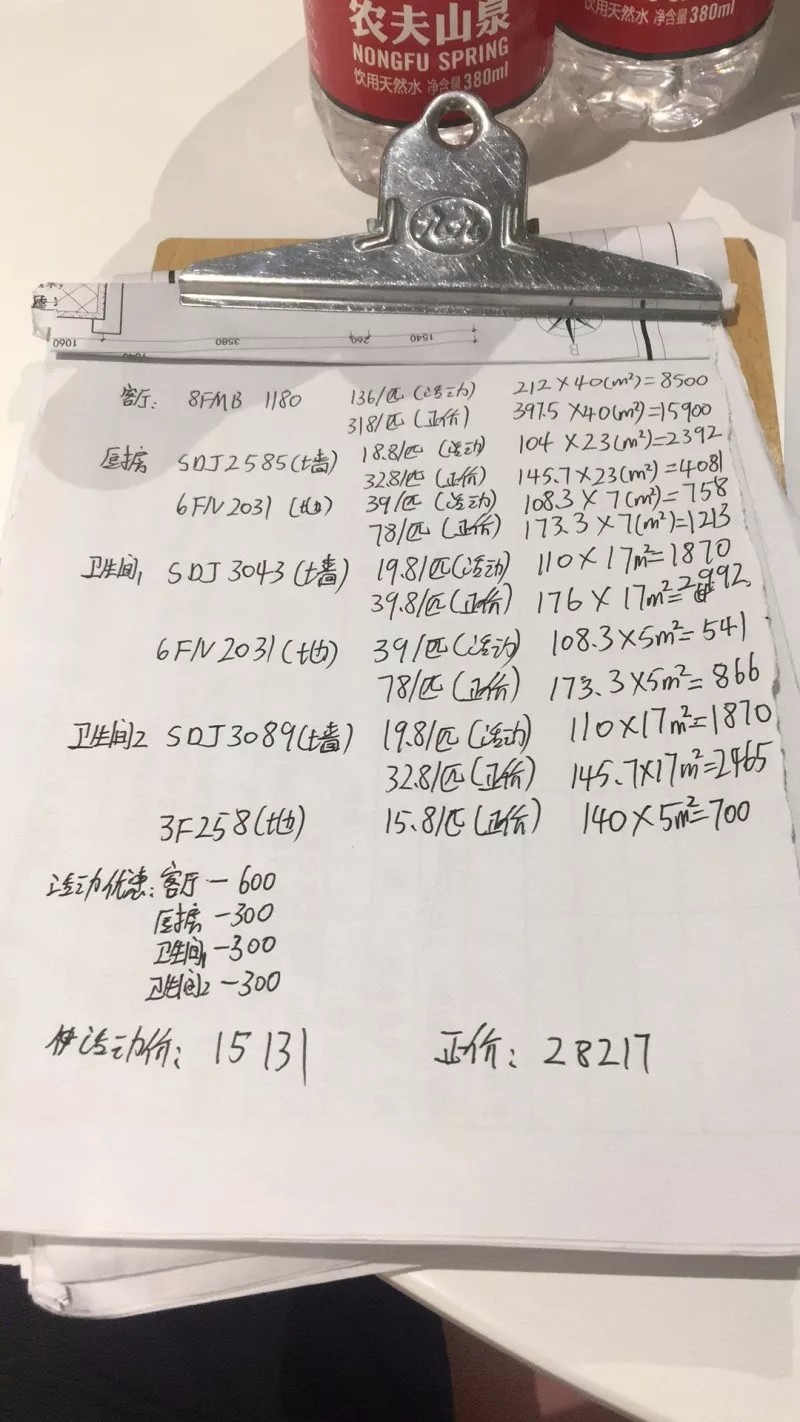 农夫山泉
NONGFU SPRING
饮用天然水 净含量380ml
饮用天然水 净含量380ml
1060
3580
260
1540
B
客厅: 8FMB 1180 136/匹(活动) 212×40(m²)=8500
318/匹(正价) 397.5×40(m²)=15900
厨房 SDJ2585(墙) 18.8/匹(活动) 104×23(m²)=2392
32.8/匹(正价) 145.7×23(m²)=4081
6FN2031(地) 39/匹(活动) 108.3×7(m²)=758
78/匹(正价) 173.3×7(m²)=1213
卫生间1 SDJ3043(墙) 19.8/匹(活动) 110×17m²=1870
39.8/匹(正价) 176×17m²=2992
6FN2031(地) 39/匹(活动) 108.3×5m²=541
78/匹(正价) 173.3×5m²=866
卫生间2 SDJ3089(墙) 19.8/匹(活动) 110×17m²=1870
32.8/匹(正价) 145.7×17m²=2465
3F258(地) 15.8/匹(正价) 140×5m²=700
活动优惠: 客厅-600
厨房-300
卫生间1-300
卫生间2-300
活动价: 15131 正价: 28217